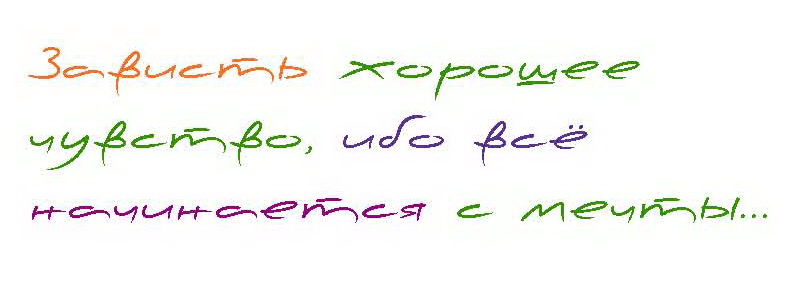 Зависть хорошее
чувство, ибо всё
начинается с мечты...